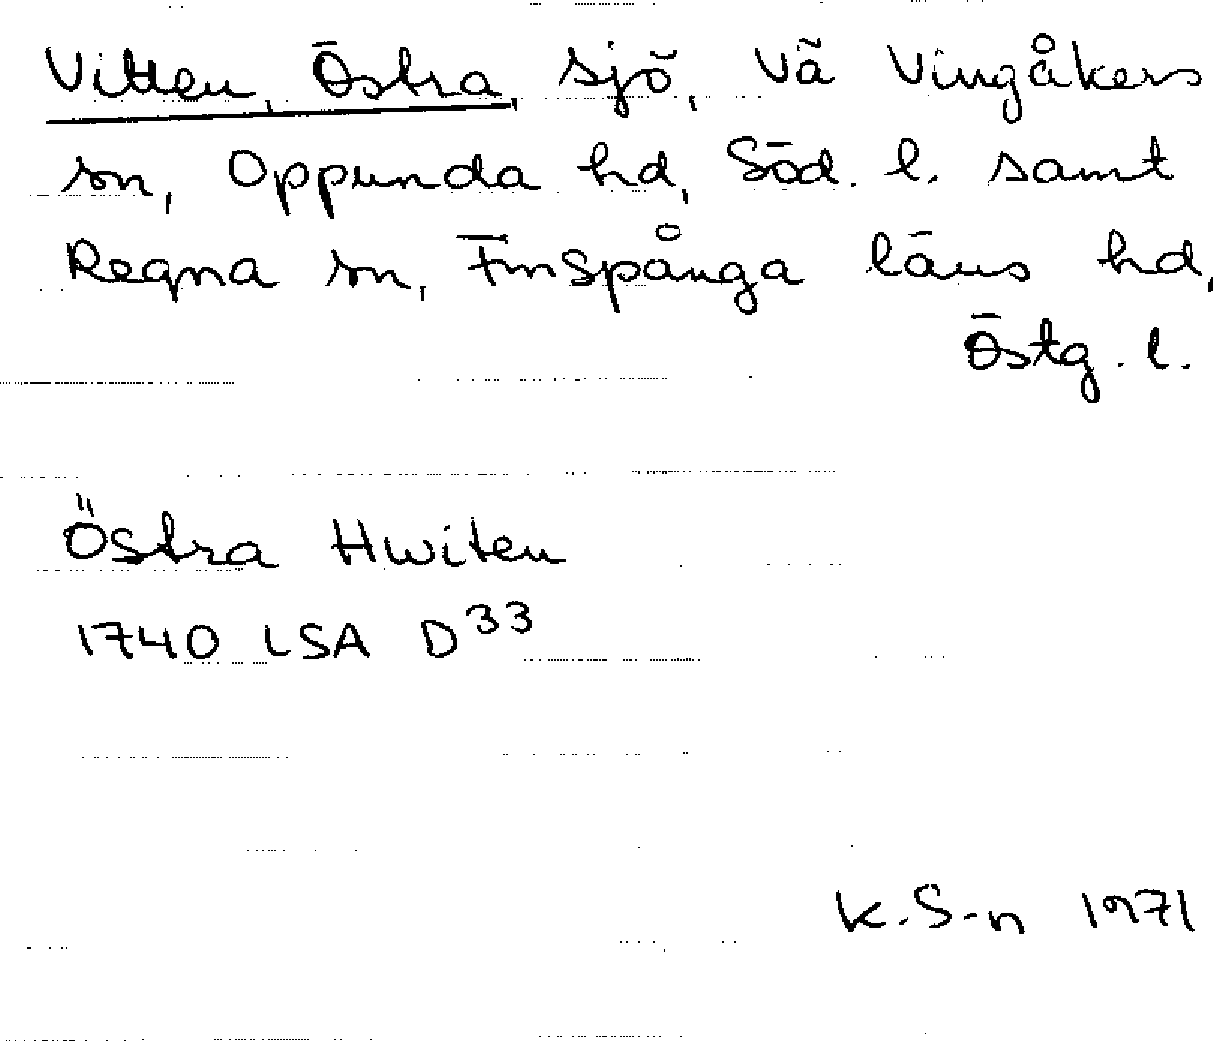 Vitten, Östra, sjö, Vä Vingåkers
sn, Oppunda hd, Söd. l. samt
Regna sn, Finspånga läns hd,
Östg. l.
Östra Hwiten
1740 LSA D33
K.S-n 1971